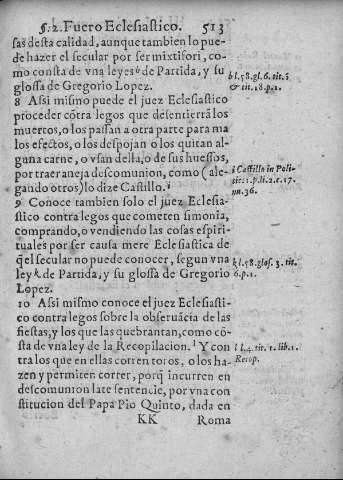 §.2. Fuero Eclesiastico. 513
sas desta calidad, aunque tambien lo pue-
de hazer el secular por ser mixtifori, co-
mo consta de vna ley es h de Partida, y su
glossa de Gregorio Lopez.
h l.58.gl.6. tit.5
& tit.18.p.1.
8 Assi mismo puede el juez Eclesiastico
proceder cõtra legos que desentierrã los
muertos, o los passan a otra parte para ma
los efectos, o los despojan o los quitan al-
guna carne, o vsan della, o de sus huessos,
por traer aneja descomunion, como (ale-
gando otros) lo dize Castillo. i
i Castillo in Poli-
tic.1.p.li.2.c.17.
nu.36.
9 Conoce tambien solo el juez Eclesia-
stico contra legos que cometen simonia,
comprando, o vendiendo las cosas espiri-
tuales por ser causa mere Eclesiastica de
q̃ el secular no puede conocer, segun vna
ley k de Partida, y su glossa de Gregorio
Lopez.
k l.58.glos.3. tit.
6.p.1.
10 Assi mismo conoce el juez Eclesiasti-
co contra legos sobre la obseruãcia de las
fiestas, y los que las quebrantan, como cõ-
sta de vna ley de la Recopilacion. l Y con
tra los que en ellas corren toros, o los ha-
zen y permiten correr, porq̃ incurren en
descomunion late sentencie, por vna con
stitucion del Papa Pio Quinto, dada en
l l.4. tit. 1. lib.1.
Recop.
KK Roma